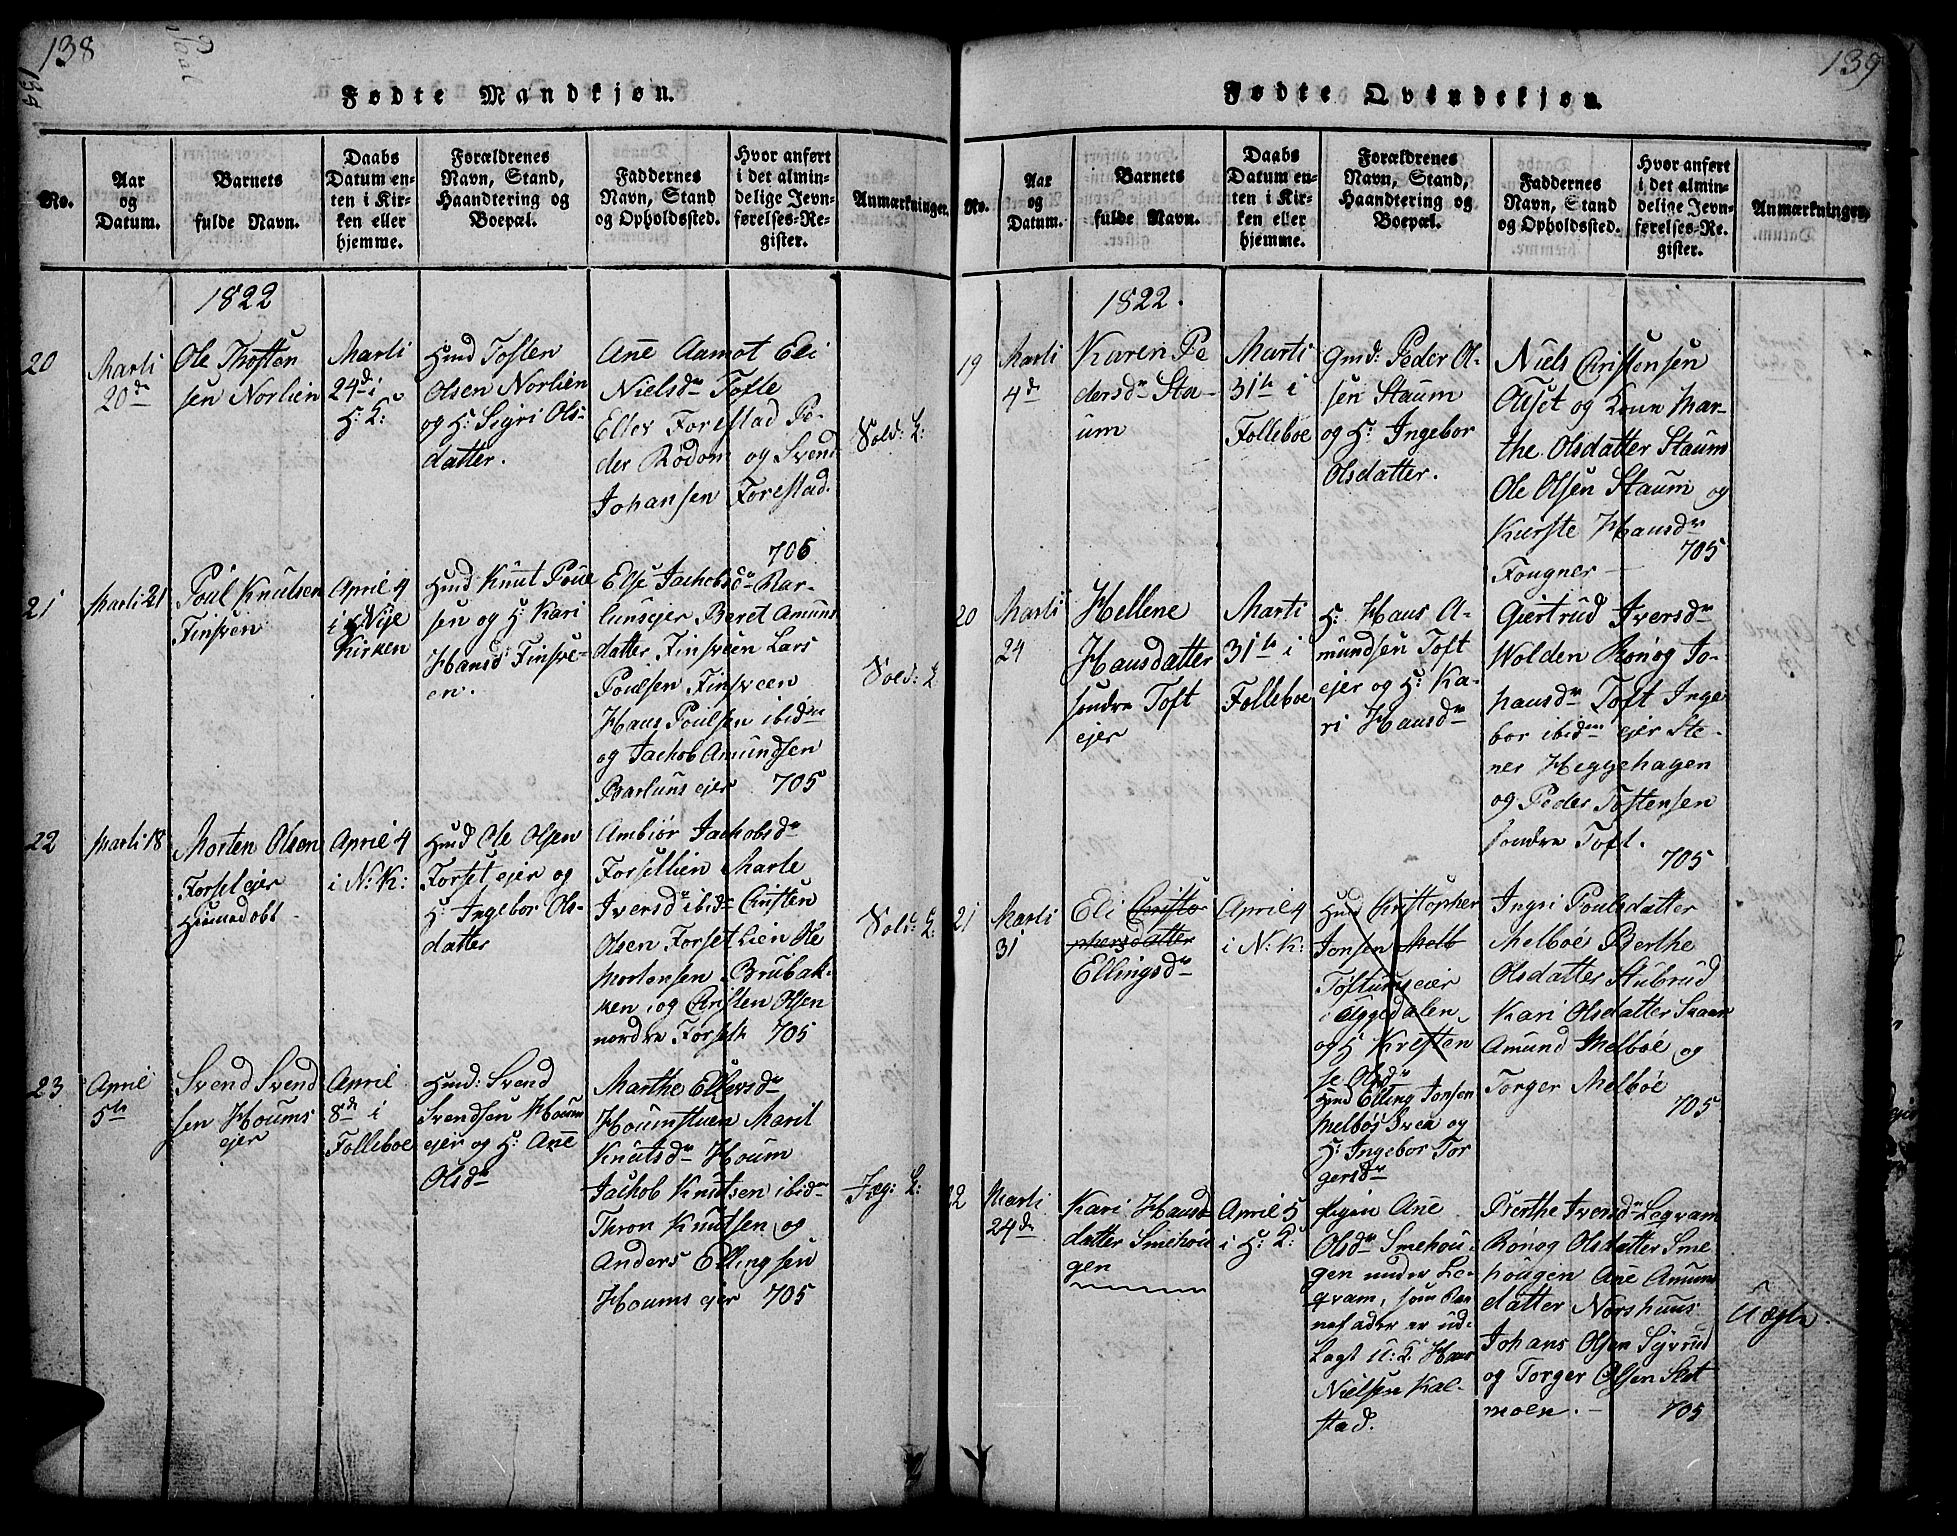 138
Fødte Mandkjøn.
No.
Aar
og
Datum.
Barnets
fulde Navn.
Daabs
Datum en-
ten i Kir-
ken eller
hjemme.
Forældrenes
Navn, Stand,
Haandtering og
Boepæl.
Faddernes
Navn, Stand
og Opholdssted.
Hvor anført
i det almin-
delige Jevn-
førelses-Re-
gister.
Anmærkninger.
1822
20
Marti
20de
Ole Thosten
sen Norlien
Marti
24d i
H: K:
Hmd Tosten
Olsen Norlien
og H: Sigri Ols-
datter.
Ane Aamot Eli
Nielsdr Tofte
Ellev Forestad Pe-
der Rodom og Svend
Johansen Forestad.
705
Sold: L:
21
Marti 21
Poul Knutsen
Finsveen
April 4
i Nye
Kirken
Hmd Knut Poul
sen og H: Kari
Hansd Finsve-
en.
Else Jachobsdr Bar-
lunsejer Beret Amuns
datter Finsveen Lars
Poulsen Finsveen
Hans Poulsen ibidm
og Jachob Amundsen
Barluns ejer 705
Sold: L
22
Marti 18
Morten Olsen
Forset ejer
hiemedøbt
April 4
i N: K:
Hmd Ole Olsen
Forset ejer og
H: Ingebor Ols-
datter
Ambiør Jachobsdr
Forsetlien Marte
Iversd ibidm Cristen
Olsen Forset Lien Ole
Mortensen Brubak-
ken, og Cristen Olsen
nordre Forseth 705
Sold: L:
23
April
5te
Svend Svend
sen Houms
ejer
April
8d i
Folleboe
Hmd: Svend
Svendsen Houm
ejer og H: Ane
Olsdr
Marthe Ellevsdr
Houmstuen Marit
Knutsdr Houm
Jachob Knutsen ibidm
Thron Knutsen og
Anders Ellingsen
Houms ejer 705
Jæg: L:
139
Fødte Qvindekjøn.
No.
Aar
og
Datum.
Barnets
fulde Navn.
Daabs
Datum en-
ten i Kir-
ken eller
hjemme.
Forældrenes
Navn, Stand,
Haandtering og
Boepæl.
Faddernes
Navn, Stand
og Opholdssted.
Hvor anført
i det almin-
delige Jevn-
førelses-Re-
gister.
Anmærkninger.
1822.
19
Marti
4de
Karen Pe
dersdr Sta-
um
Marti
31te i
Folleboe
Gmd: Peder Ol-
sen Staum
og H: Ingebor
Olsdatter.
Niels Christensen
Olset og Kone Mar-
the Olsdatter Staum
Ole Olsen Staum og
Kierste Hansdr
Fougner 705
20
Marti
24
Hellene
Hansdatter
søndre Toft
ejer
Marti
31te i
Folleboe
H: Hans A-
mundsen Toft
ejer og H: Ka-
ri Hansdr
Giertrud Iversdr
Wolden Rønog Jo-
hansdr Toft Inge
bor ibidm ejer Ste-
ner Heggehagen
og Peder Tostensen
søndre Toft.
705
21
Marti
31
Eli Christo
phersdatter
Ellingsdr
April 4
i N: K:
Hmd Kristopher
Jonsen Melb
Toftumseier
i Eggedalen
og H Kresten
se Olsdr
Hmd Elling Jonsen
Melbøs Svea og
H: Ingebor Tor
gersdr
Ingri Poulsdatter
Melboe Berthe
Olsdatter Stubrud
Kari Olsdatter Saarr
Amund Melbøe og
Torger Melbøe
705
22
Marti
24de
Kari Hans
datter Smehou
gen
April 5
i H: K:
Pigen Ane
Olsdr Smehou-
gen under Le-
gram, som Bar
nefader er ud-
lagt U: K: Hans
Nielsen Kal-
stad.
Berthe Iversdr Legram
Rønog Olsdatter Sme
hougen Ane Amuns
datter Norshuus
Johans Olsen Syvrud
og Torger Olsen Slet
moen. 705
Uægte.